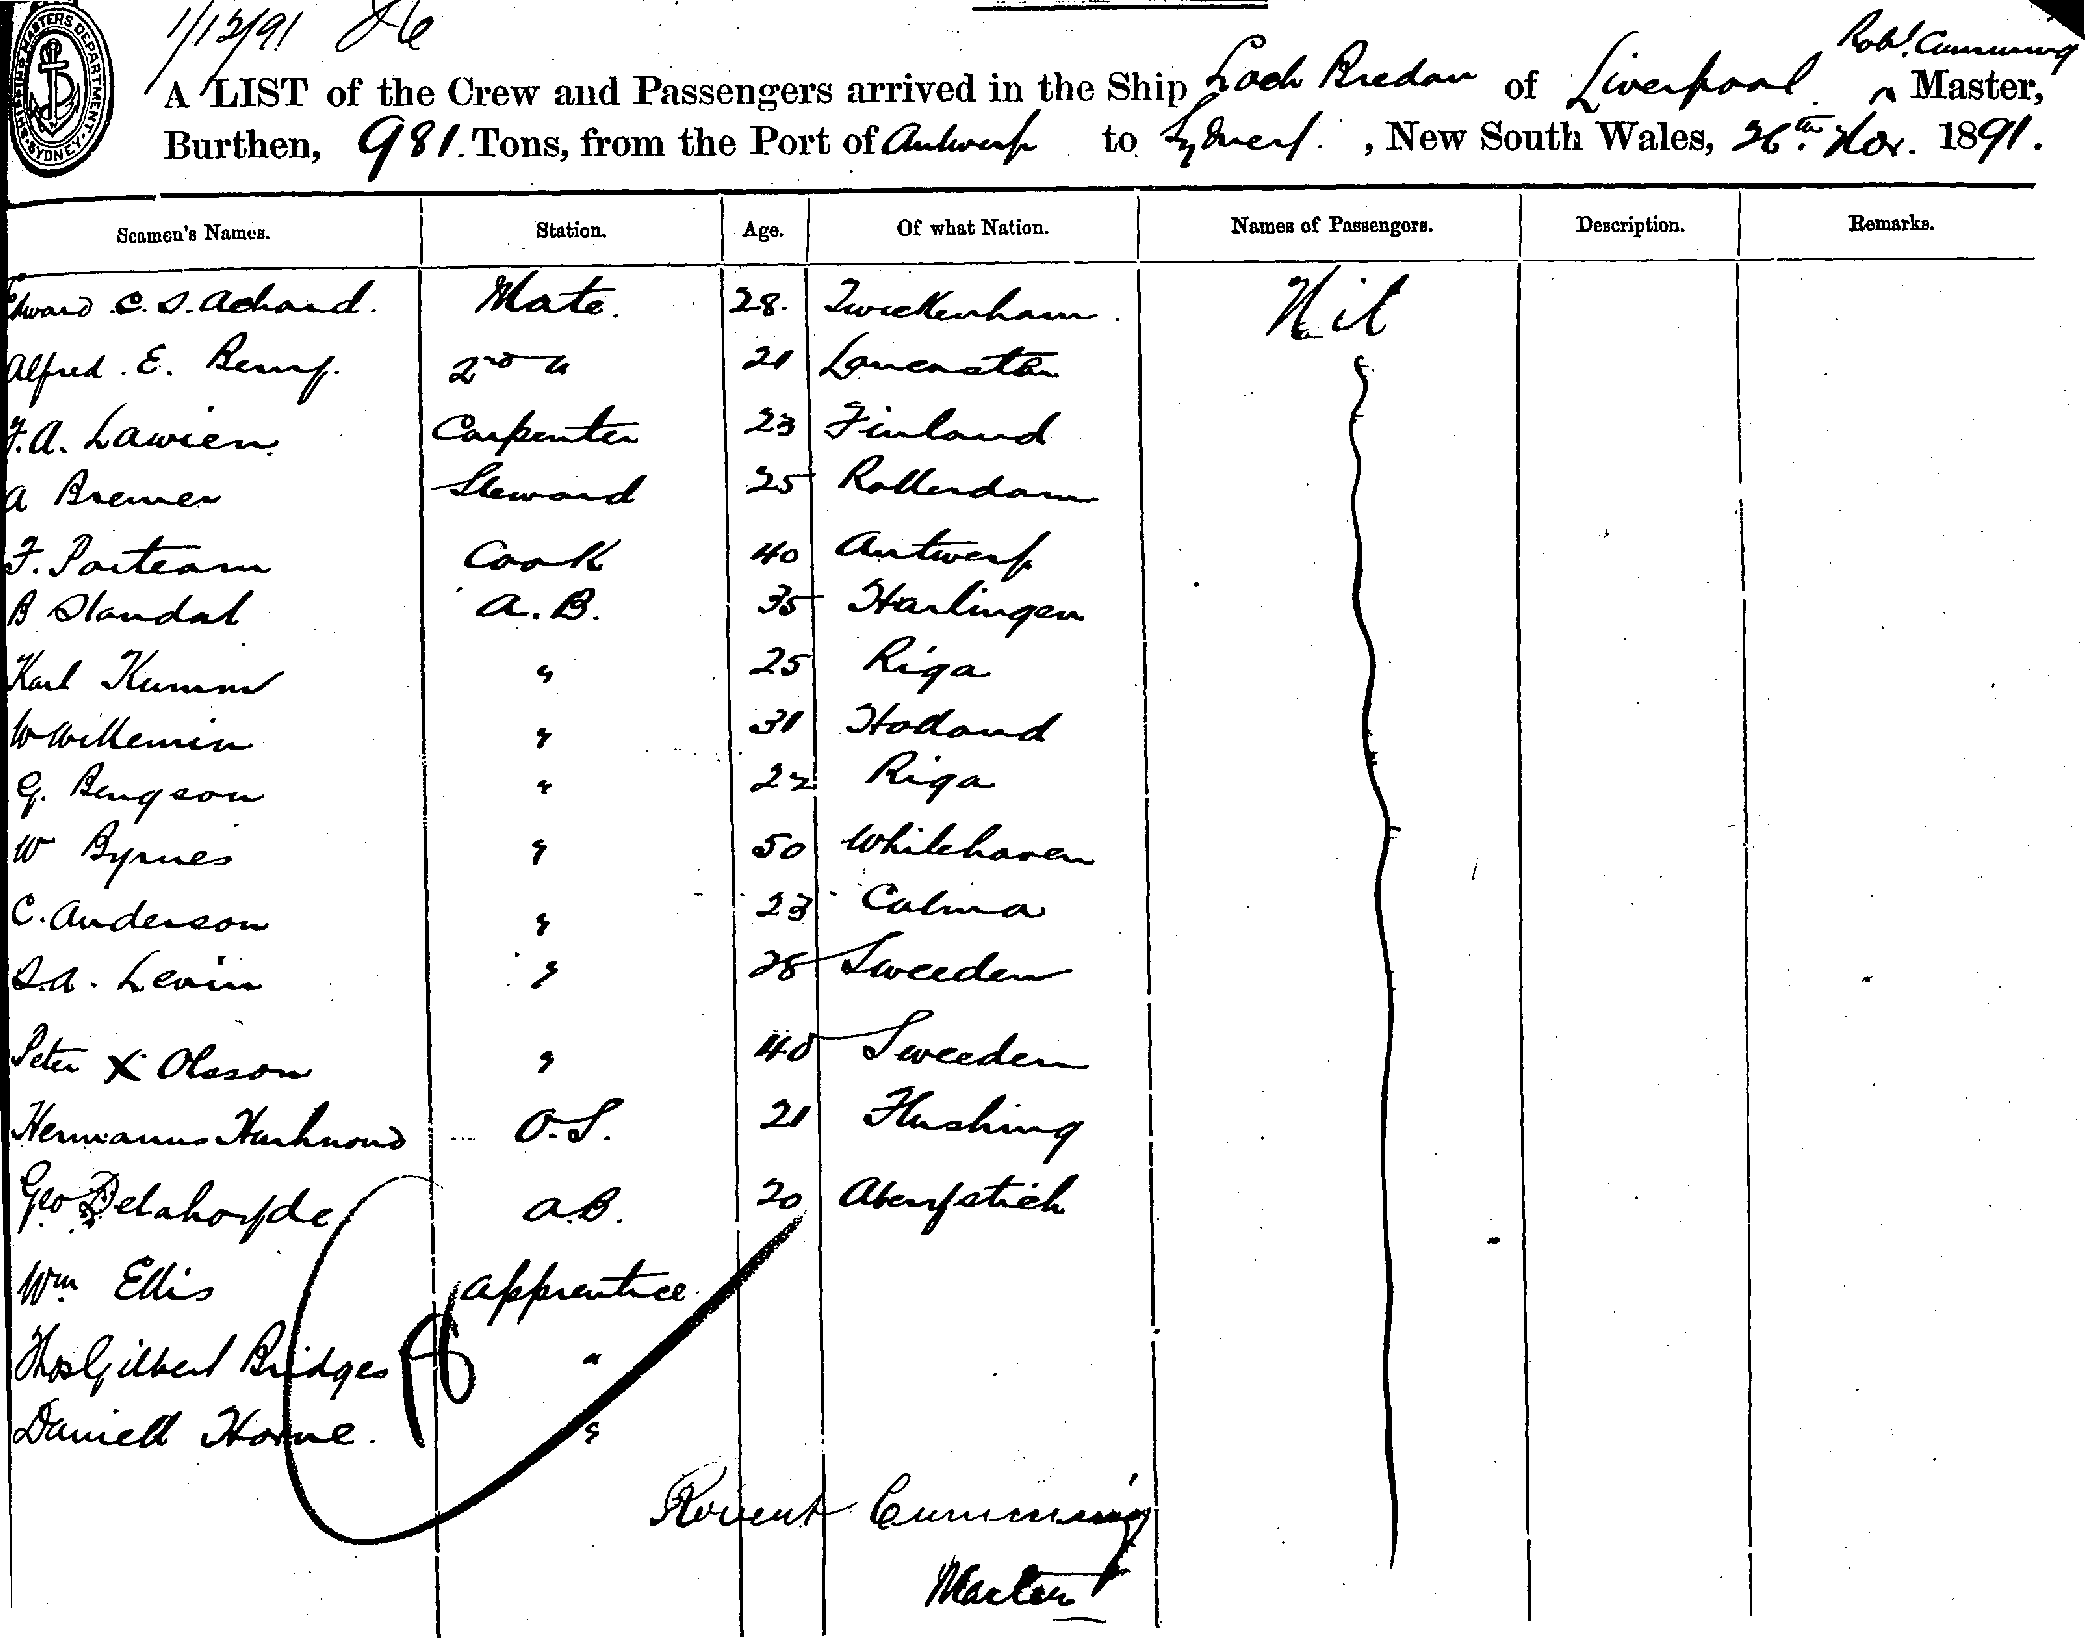 1/12/91
SHIPPING MASTERS DEPARTMENT. SYDNEY.
Robt. Cumming
A LIST of the Crew and Passengers arrived in the Ship Loch Bredan of Liverpool ^ Master,
Burthen, 981. Tons, from the Port of Antwerp to Sydney. , New South Wales, 26th Nov. 1891.
Seamen's Names. Station. Age. Of what Nation. Names of Passengers. Description. Remarks.
Edward C. S. Achard. Mate. 28. Twickenham. Nil
Alfred. E. 2nd " 21 Lancaster
F. A. Lawien. Carpenter 23 Finland
A Bremer Steward 25 Rotterdam
F. Cook 40 Antwerp
B Standal A. B. 35 Harlingen
Karl Kumm " 25 Riga
W Willemin " 31 Holland
G. Bengson " 22 Riga
W Byrnes " 50 Whitehaven
C. Anderson " 23 Calma
S. A. Levin " 28 Sweeden
Peter X Olsson " 40 Sweeden
Hermanus O. S. 21 Flushing
Geo Delahoyde A.B. 20
Wm Ellis Apprentice
Thos Gilbert Bridges "
Daniell Horne. "
18
Robert Cumming
Master